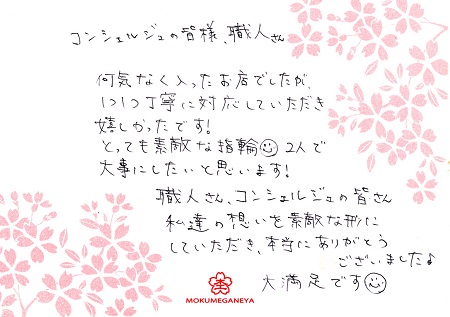 コンシェルジュの皆様、職人さん
何気なく入ったお店でしたが、
1つ1つ丁寧に対応していただき
嬉しかったです!
とっても素敵な指輪☺2人で
大事にしたいと思います!
職人さん、コンシェルジュの皆さん
私達の想いを素敵な形に
していただき、本当にありがとう
ございました♪
大満足です☺
MOKUMEGANEYA